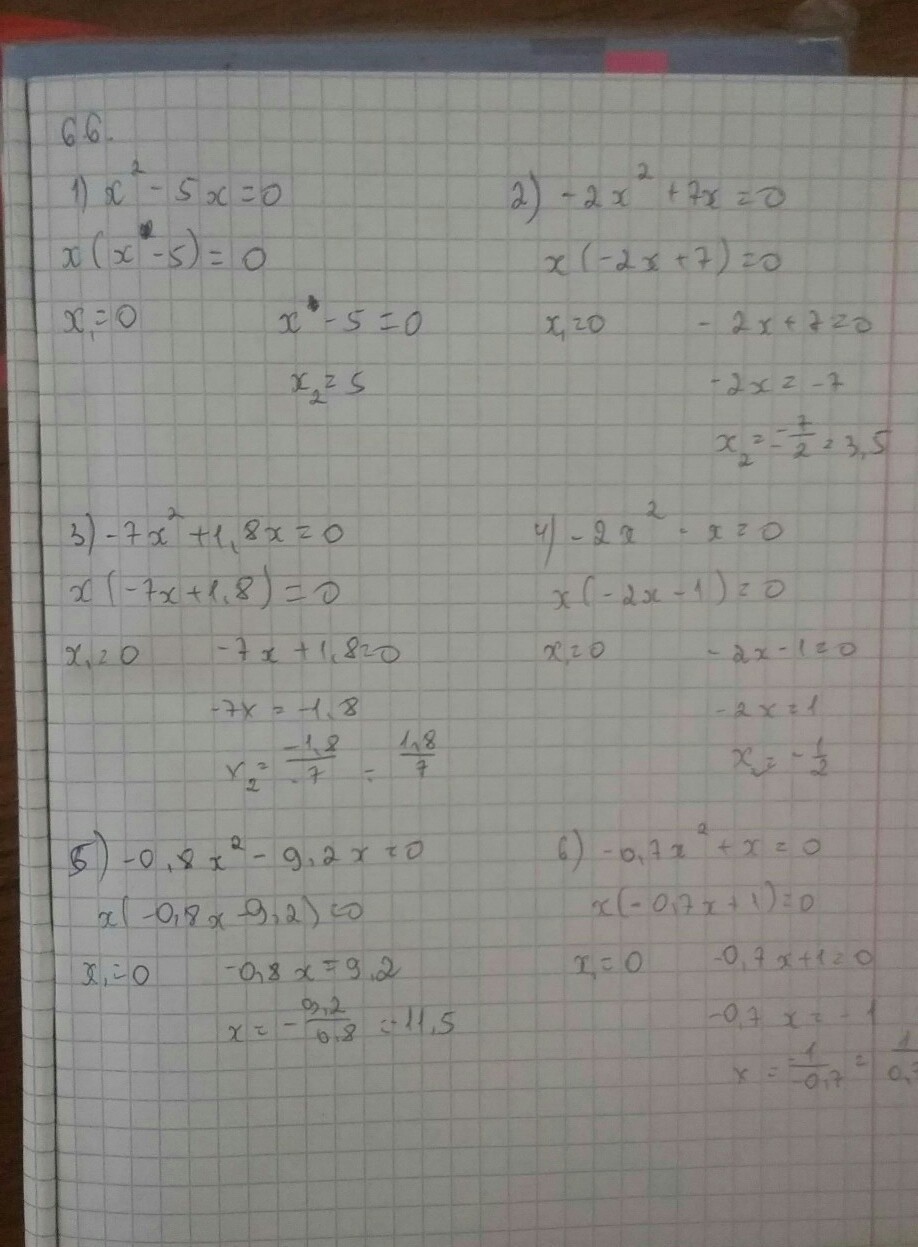 66.
1) x² - 5x = 0
x(x - 5) = 0
x₁ = 0 x - 5 = 0
x₂ = 5
2) -2x² + 7x = 0
x(-2x + 7) = 0
x₁ = 0 -2x + 7 = 0
-2x = -7
x₂ = -7/2 = 3,5
3) -7x² + 1,8x = 0
x(-7x + 1,8) = 0
x₁ = 0 -7x + 1,8 = 0
-7x = -1,8
x₂ = -1,8/-7 = 1,8/7
4) -2x² - x = 0
x(-2x - 1) = 0
x₁ = 0 -2x - 1 = 0
-2x = 1
x₂ = -1/2
5) -0,8x² - 9,2x = 0
x(-0,8x - 9,2) = 0
x₁ = 0 -0,8x = 9,2
x = -9,2/0,8 = -11,5
6) -0,7x² + x = 0
x(-0,7x + 1) = 0
x₁ = 0 -0,7x + 1 = 0
-0,7x = -1
x = -1/-0,7 =